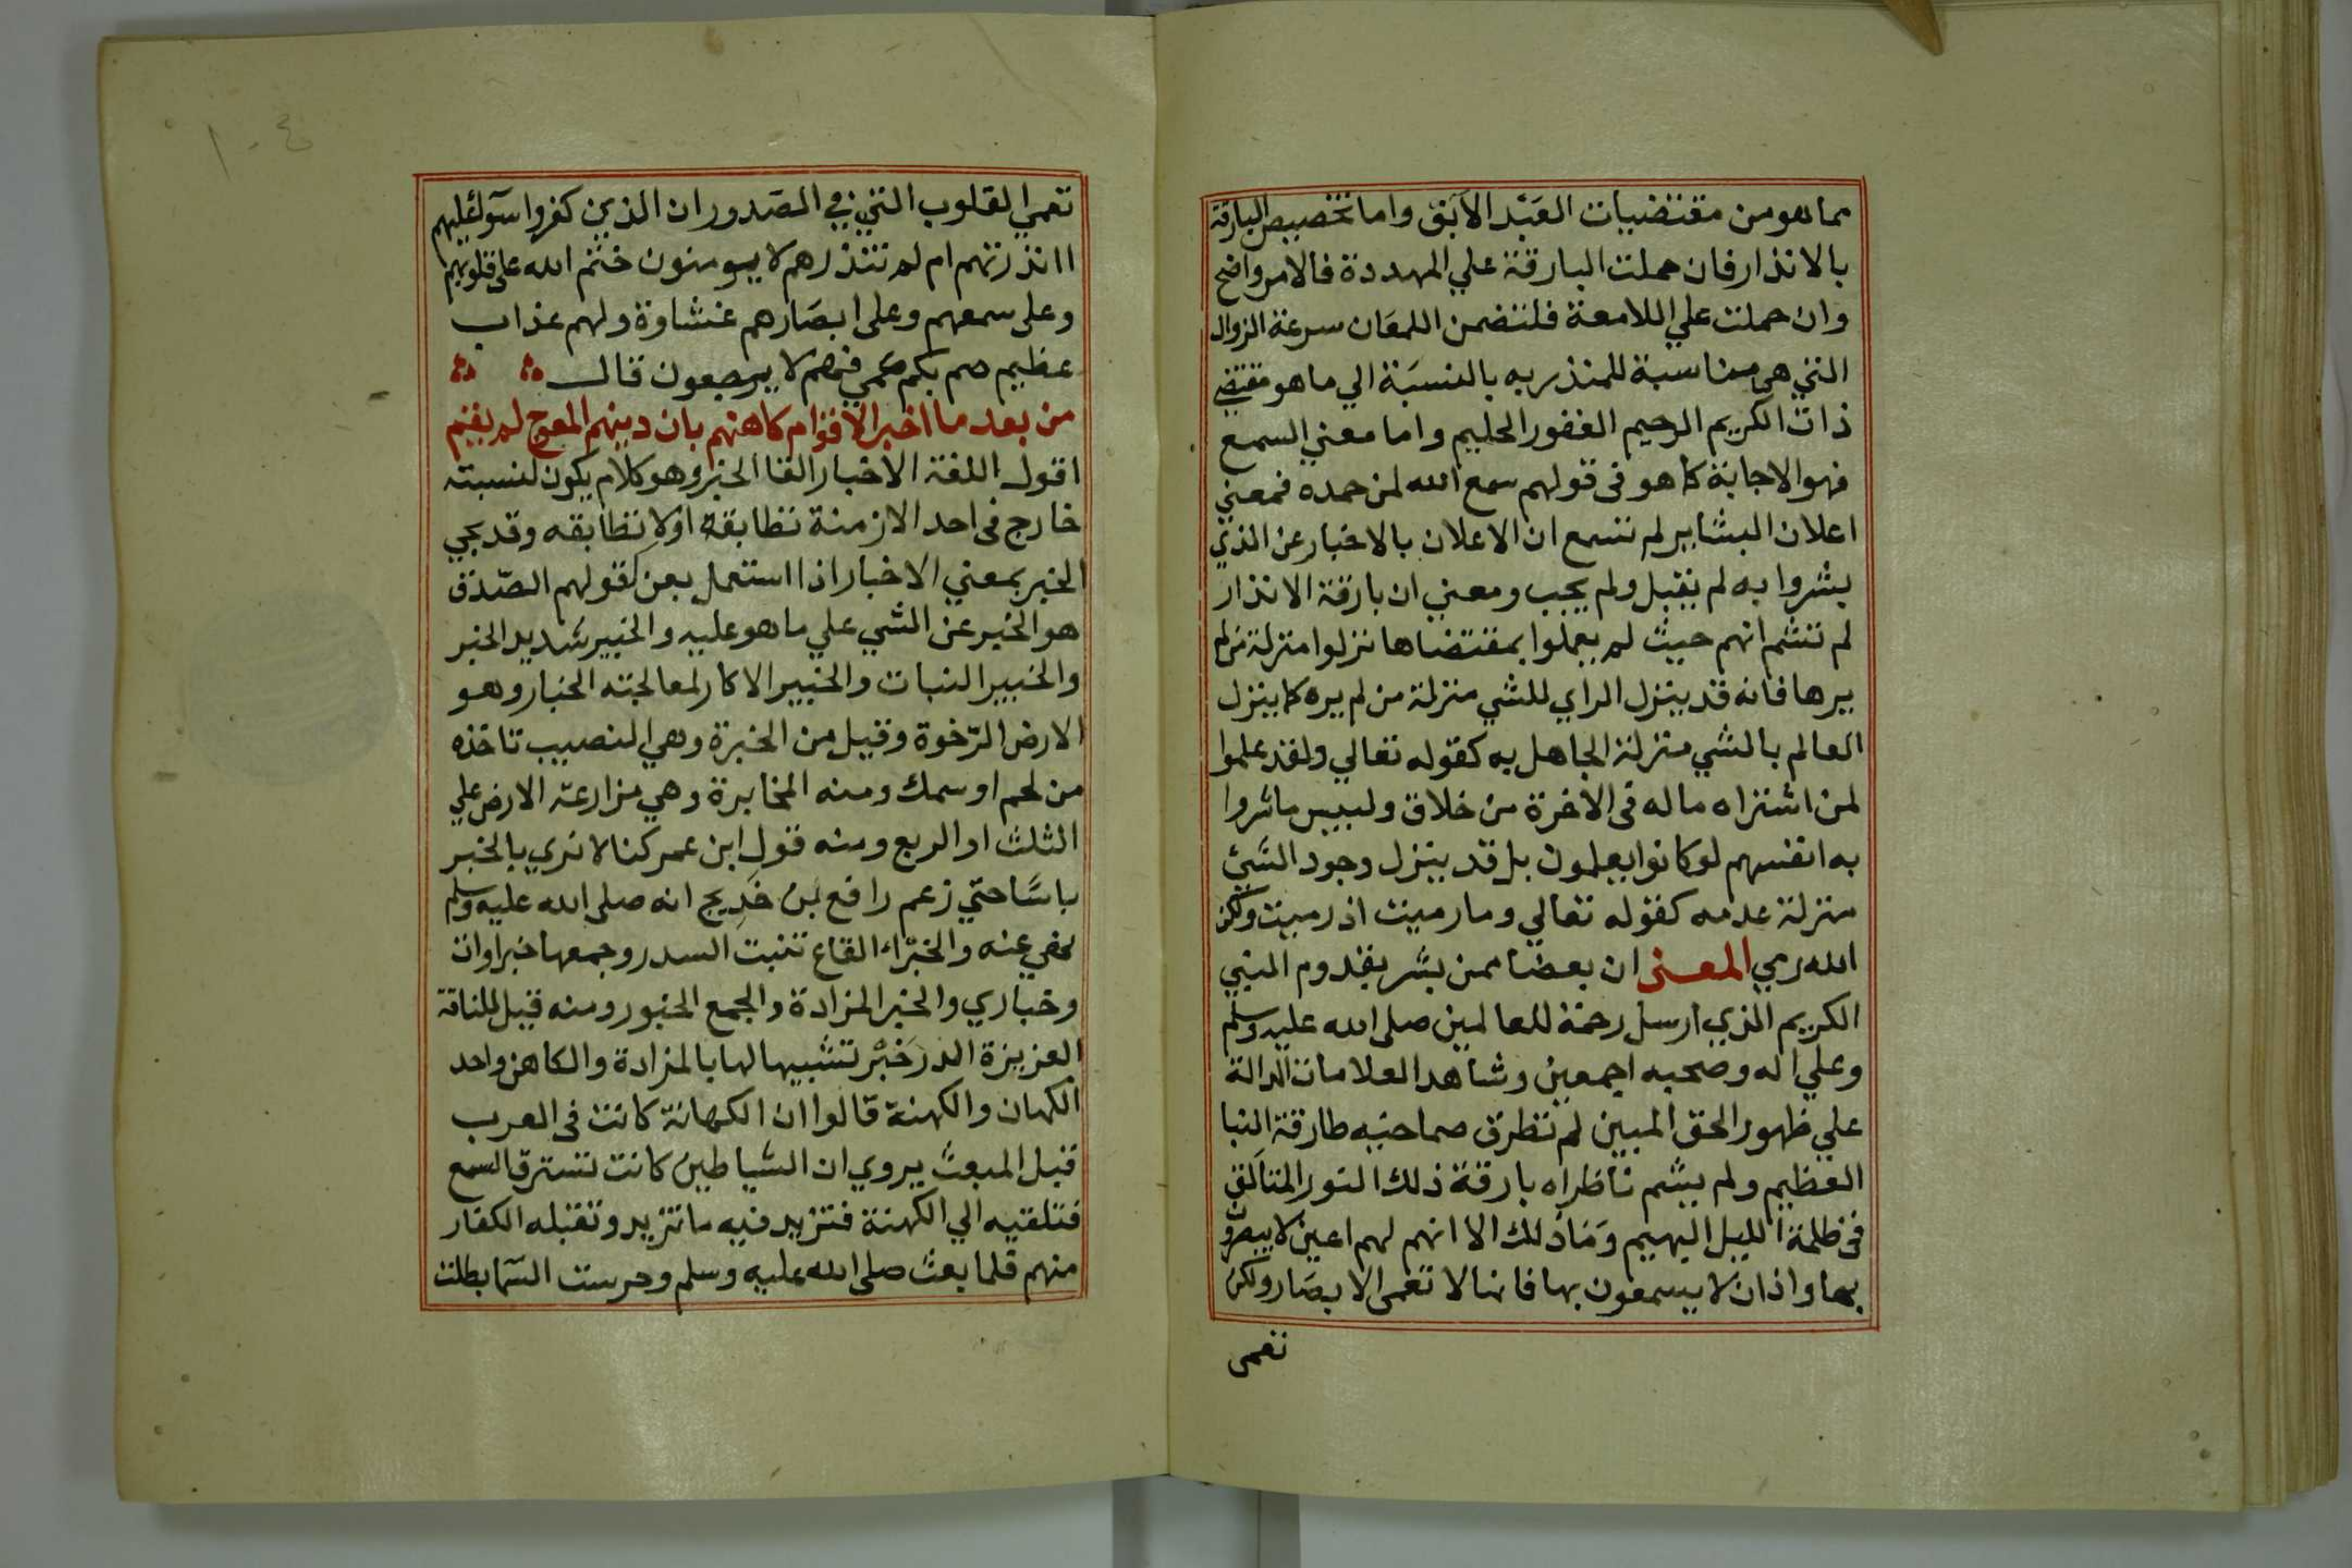 مما هو من مقتضيات العَبْد الآبق واما تخصيص البارقة
بالانذار فان حملت البارقة علي المهددة فالامر واضح
وان حملت علي اللامعة فلتضمن اللمعَان سرعة الزوال
التي هي مناسبة للمنذر به بالنسبَة الي ما هو مقتضي
ذات الكريم الرحيم الغفور الحليم واما معني السمع
فهو الاجابة كما هو في قولهم سمع الله لمن حمده فمعني
اعلان البشاير لم تسمع ان الاعلان بالاخبار عن الذي
بشروا به لم يقبل ولم يجب ومعني ان بارقة الانذار
لم تشم انهم حيث لم يعملوا بمقتضاها نزلوا منزلة من لم
يرها فانه قد ينزل الراي للشي منزلة من لم يره كما ينزل
العالم بالشي منزلة الجاهل به كقوله تعالي ولقد علموا
لمن اشتراه ما له في الاخرة من خلاق ولبيس ما شروا
به انفسهم لو كانوا يعلمون بل قد ينزل وجود الشيء
منزلة عدمه كقوله تعالي وما رميت اذ رميت ولكن
الله رمي المعنى ان بعضا ممن بشر بقدوم النبي
الكريم الذي ارسل رحمة للعالمين صلى الله عليه وسلم
وعلي اله وصحبه اجمعين وشاهد العلامات الدالة
علي ظهور الحق المبين لم تطرق صماخيه طارقة النبا
العظيم ولم يشم ناظراه بارقة ذلك النور المتالق
في ظلمة الليل البهيم وَمَا ذلك الا انهم لهم اعين لا يبصرون
بها واذان لا يسمعون بها فانها لا تعمى الابصَار ولكن
تعمى
١٠٤
تعمي القلوب التي في الصّدور ان الذين كفروا سوآء عليهم
اانذرتهم ام لم تنذرهم لا يومنون ختم الله على قلوبهم
وعلى سمعهم وعلى ابصَارهم غشاوة ولهم عذاب
عظيم صم بكم عمي فهم لا يرجعون قال
من بعد ما اخبر الاقوام كاهنهم بان دينهم المعوج لم يقم
اقول اللغة الاخبار القا الخبر وهو كلام يكون لنسبته
خارج في احد الازمنة تطابقه او لا تطابقه وقد يجي
الخبر بمعني الاخبار اذا استعمل بعن كقولهم الصّدق
هو الخبر عن الشي علي ما هو عليه والخبير شديد الخبر
والخبير النبات والخبير الاكار لمعالجته الخبار وهو
الارض الرّخوة وقيل من الخبرة وهي النصيب تاخذه
من لحم او سمك ومنه المخابرة وهي مزارعة الارض علي
الثلث او الربع ومنه قول ابن عمر كنا لا نري بالخبر
باسًا حتي زعم رافع بن خَدِيج انه صلى الله عليه وسلم
نهي عنه والخبْراء القاع تنبت السدر وجمعها خبراوات
وخباري والخبر المزادة والجمع الخبور ومنه قيل للناقة
العزيزة الدر خَبْر تشبيها لها بالمزادة والكاهن واحد
الكهان والكهنة قالوا ان الكهانة كانت في العرب
قبل المبعث يروي ان الشياطين كانت تسترق السمع
فتلقيه الي الكهنة فتزيد فيه ما تزيد وتقبله الكفار
منهم فلما بعث صلى الله عليه وسلم وحرست السمآ بطلت